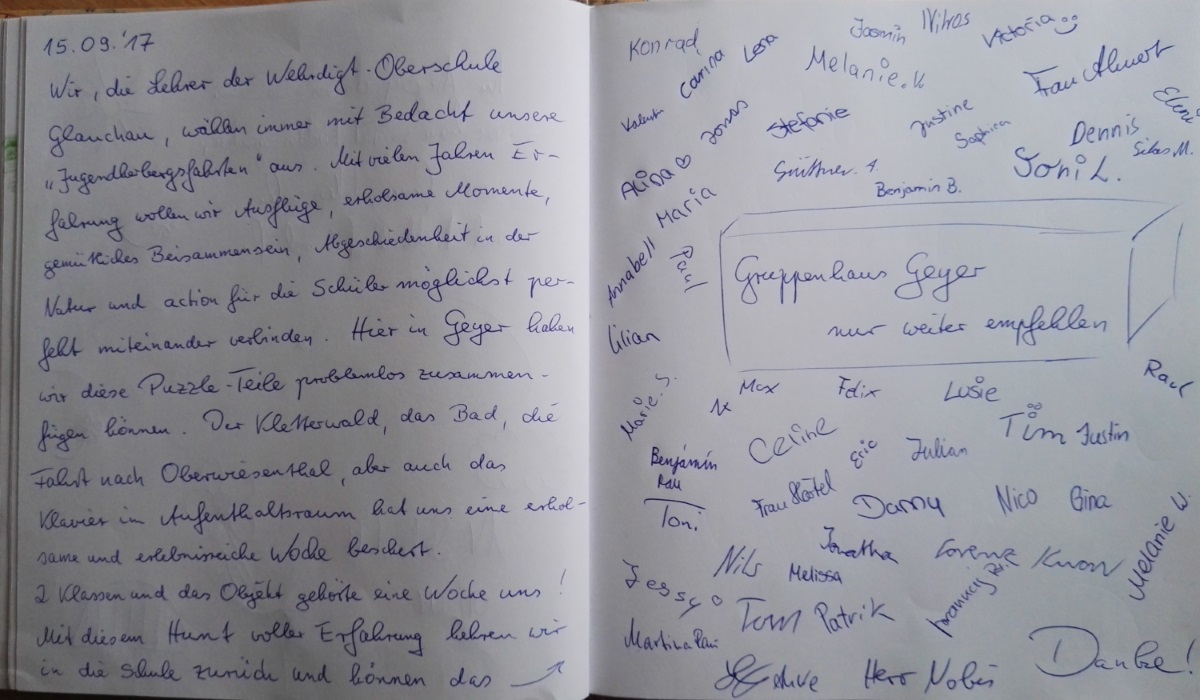 15.09.'17
Wir, die Lehrer der Wehrdigt-Oberschule
Glauchau, wählen immer mit Bedacht unsere
„Jugendherbergsfahrten" aus. Mit vielen Jahren Er-
fahrung wollen wir Ausflüge, erholsame Momente,
gemütliches Beisammensein, Abgeschiedenheit in der
Natur und action für die Schüler möglichst per-
fekt miteinander verbinden. Hier in Geyer haben
wir diese Puzzle-Teile problemlos zusammen-
fügen können. Der Kletterwald, das Bad, die
Fahrt nach Oberwiesenthal, aber auch das
Klavier im Aufenthaltsraum hat uns eine erhol-
same und erlebnisreiche Woche beschert.
2 Klassen und das Objekt gehörte eine Woche uns!
Mit diesem Hunt voller Erfahrung kehren wir
in die Schule zurück und können das
Konrad
Carina
Lena
Jasmin
Victoria
Melanie.K
Frau
Jonas
Stefanie
Justine
Sophia
Dennis
Silas M.
Alina
Maria
Toni L.
Benjamin B.
Annabell
Paul
Gruppenhaus Geyer
nur weiter empfehlen
Lilian
Marie. S.
Max
Felix
Lusie
Paul
Celine
Eric
Julian
Tim
Justin
Benjamin
Rau
Toni
Frau
Danny
Nico
Gina
Nils
Melissa
Jessy
Tom
Patrik
Melanie W.
Martina
Herr
Danke!